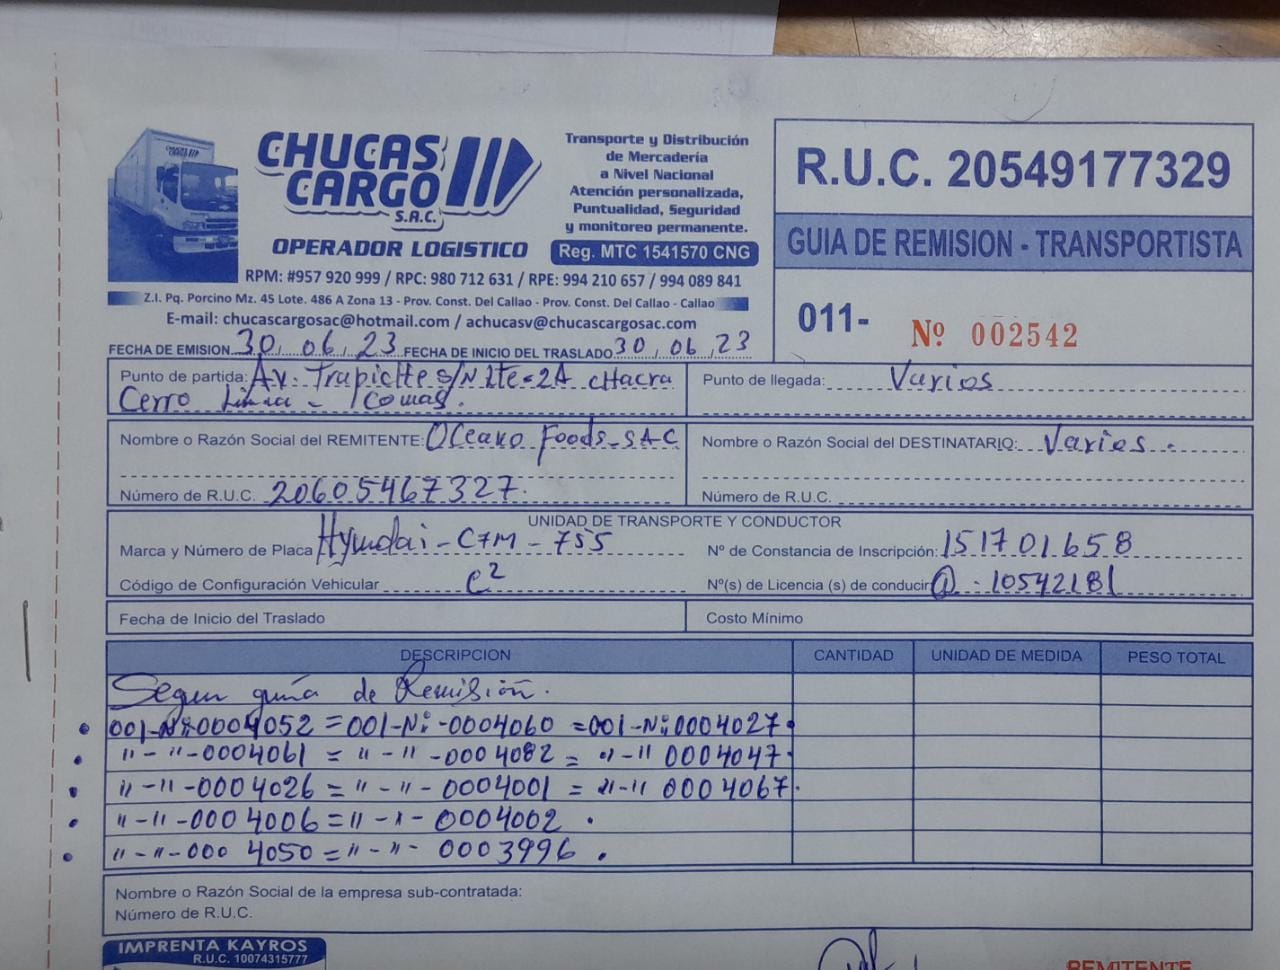 CHUCAS CARGO S.A.C.
OPERADOR LOGISTICO
Transporte y Distribución
de Mercadería
a Nivel Nacional
Atención personalizada,
Puntualidad, Seguridad
y monitoreo permanente.
Reg. MTC 1541570 CNG
RPM: #957 920 999 / RPC: 980 712 631 / RPE: 994 210 657 / 994 089 841
Z.I. Pq. Porcino Mz. 45 Lote. 486 A Zona 13 - Prov. Const. Del Callao - Prov. Const. Del Callao - Callao
E-mail: chucascargosac@hotmail.com / achucasv@chucascargosac.com
R.U.C. 20549177329
GUIA DE REMISION - TRANSPORTISTA
011- Nº 002542
FECHA DE EMISION 30, 06, 23 FECHA DE INICIO DEL TRASLADO 30, 06, 23
Punto de partida: Av. Trapiche s/N Lte-2A cHacra
Cerro Lima - Comas.
Punto de llegada: Varios
Nombre o Razón Social del REMITENTE: Oceano Foods SAC
Número de R.U.C. 20605467327
Nombre o Razón Social del DESTINATARIO: Varios.
Número de R.U.C.
UNIDAD DE TRANSPORTE Y CONDUCTOR
Marca y Número de Placa Hyundai - C7M - 755
Nº de Constancia de Inscripción: 151701658
Código de Configuración Vehicular C2
Nº(s) de Licencia (s) de conducir Q - 10542181
Fecha de Inicio del Traslado
Costo Mínimo
DESCRIPCION CANTIDAD UNIDAD DE MEDIDA PESO TOTAL
Segun guia de Remisión.
001-Nº:0004052 = 001-Nº:-0004060 = 001-Nº:0004027.
"-"-0004061 = "-"-0004082 = "-"0004047.
"-"-0004026 = "-"-0004001 = "-"0004067.
"-"-0004006 = "-"-0004002.
"-"-0004050 = "-"-0003996.
Nombre o Razón Social de la empresa sub-contratada:
Número de R.U.C.
IMPRENTA KAYROS
R.U.C. 10074315777
REMITENTE